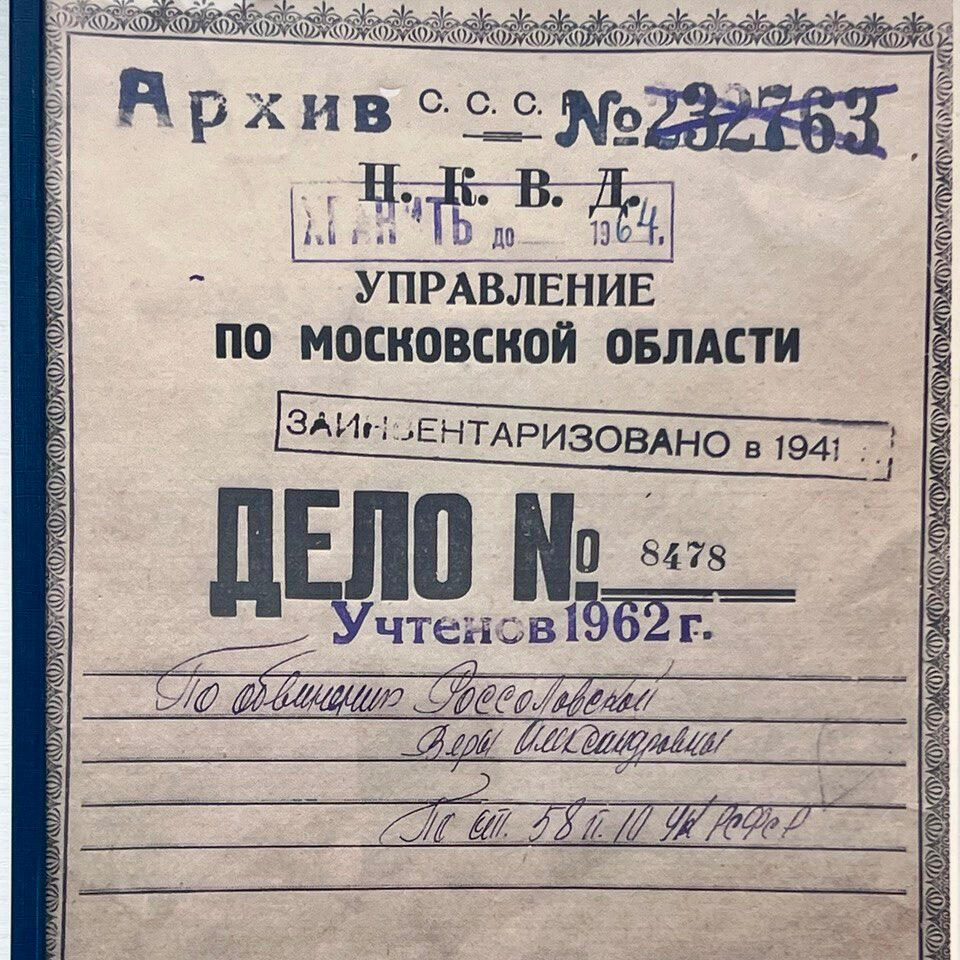 Архив С. С. С. Р. № 232763
Н. К. В. Д.
ХРАНИТЬ до 1964 г.
УПРАВЛЕНИЕ
ПО МОСКОВСКОЙ ОБЛАСТИ
ЗАИНВЕНТАРИЗОВАНО в 1941
ДЕЛО № 8478
Учтено в 1962 г.
По обвинению Россоловской
Веры Александровны
По ст. 58 п. 10 УК РСФСР